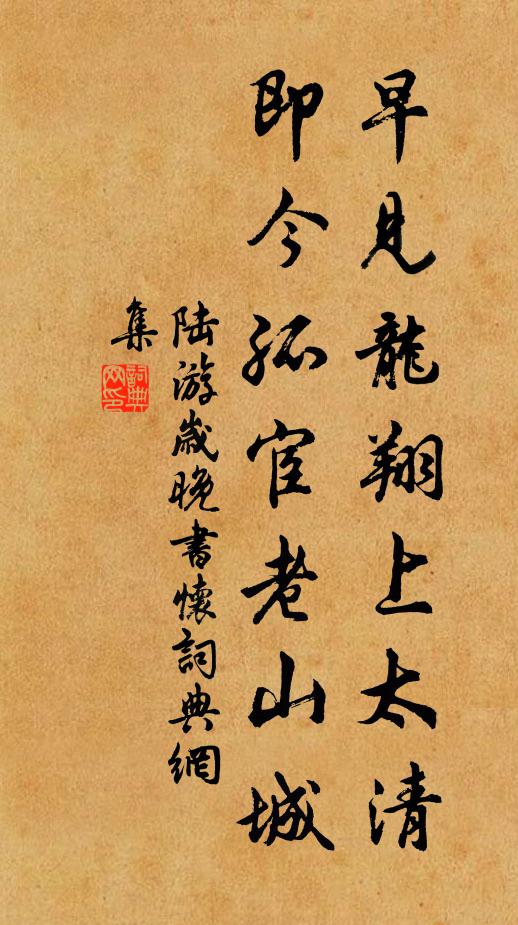 早見龍翔上太清
即今孤宦老山城
陸游歲晚書懷詞典網
集
詞典网印